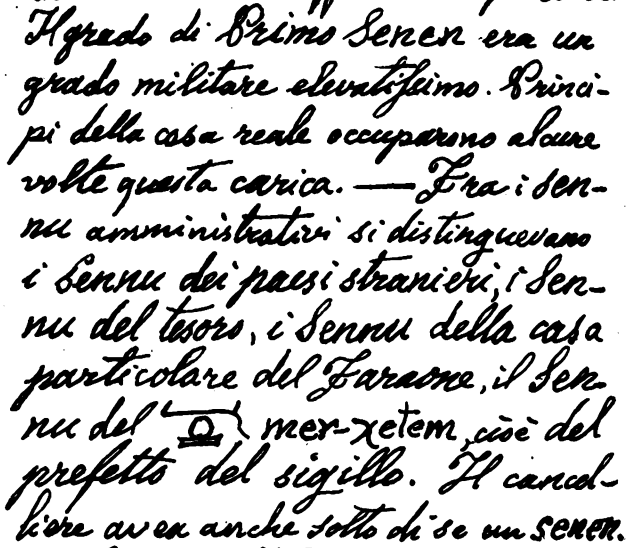 Il grado di Primo Senen era un
grado militare elevatissimo. Princi-
pi della casa reale occuparono alcune
volte questa carica. — Fra i Sen-
nu amministrativi si distinguevano
i Sennu dei paesi stranieri, i Sen-
nu del tesoro, i Sennu della casa
particolare del Faraone, il Sen-
nu del mer-χetem, cioè del
prefetto del sigillo. Il cancel-
liere avea anche sotto di se un senen.